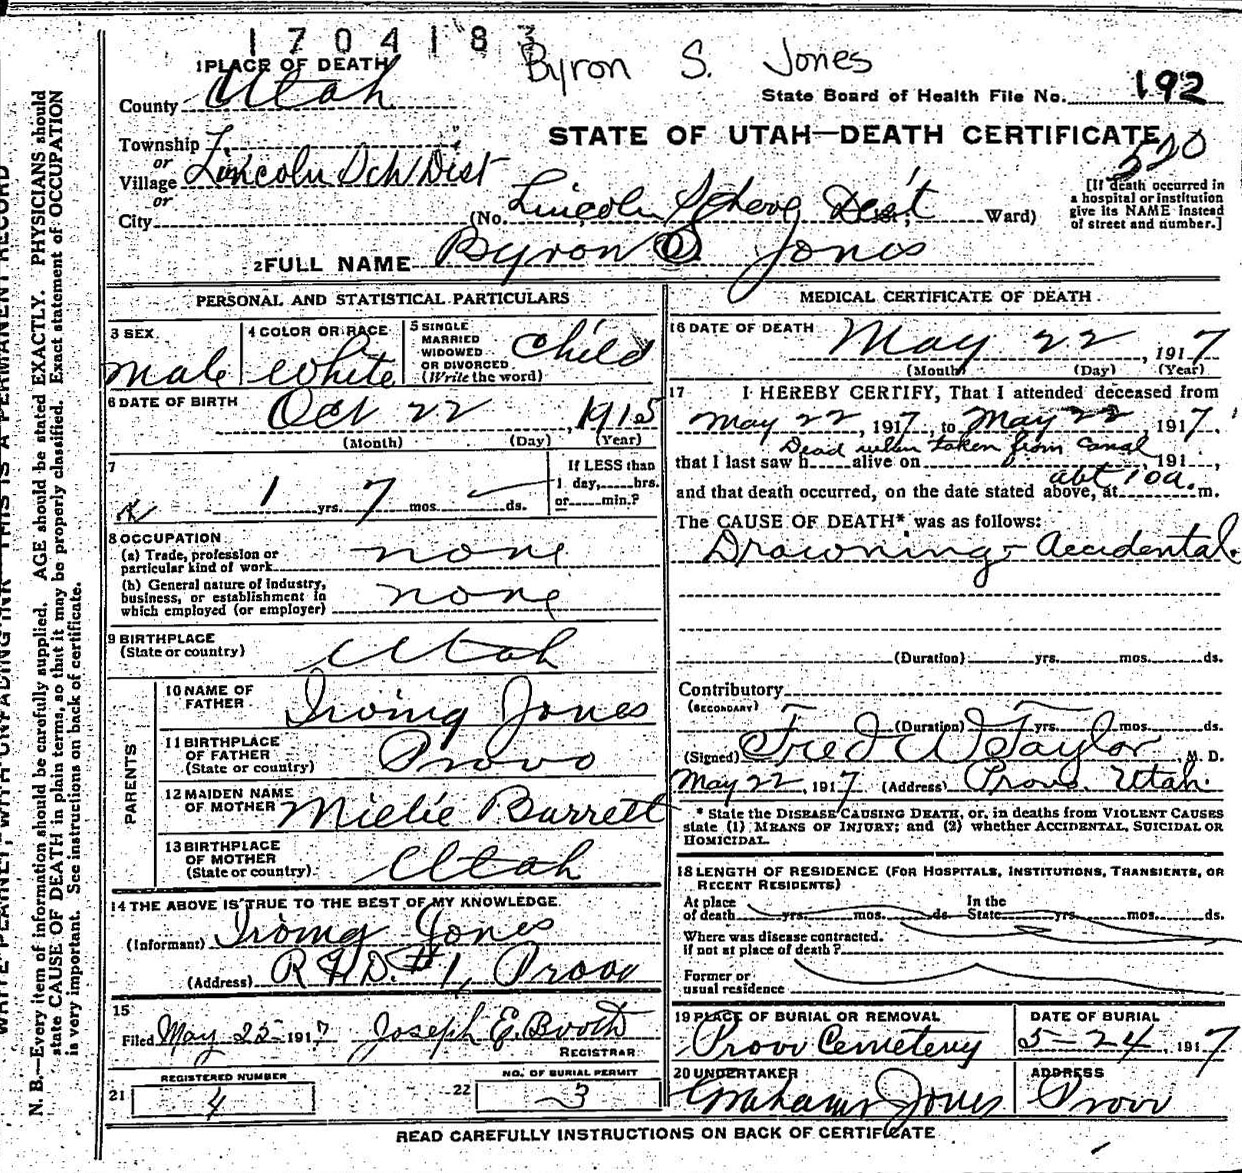 1704183
Byron S. Jones
1 PLACE OF DEATH
County Utah
State Board of Health File No. 192
STATE OF UTAH—DEATH CERTIFICATE
520
Township
or
Village Lincoln Sch Dist
or
City (No. Lincoln School Dist Ward)
[If death occurred in
a hospital or institution
give its NAME instead
of street and number.]
2 FULL NAME Byron S. Jones
PERSONAL AND STATISTICAL PARTICULARS
3 SEX
male
4 COLOR OR RACE
white
5 SINGLE
MARRIED
WIDOWED
OR DIVORCED
(Write the word)
child
6 DATE OF BIRTH
Oct 22, 1915
(Month) (Day) (Year)
7
1 yrs. 7 mos. ds.
If LESS than
1 day, hrs.
or min.?
8 OCCUPATION
(a) Trade, profession or
particular kind of work none
(b) General nature of industry,
business, or establishment in
which employed (or employer) none
9 BIRTHPLACE
(State or country) Utah
PARENTS
10 NAME OF
FATHER Irving Jones
11 BIRTHPLACE
OF FATHER
(State or country) Provo
12 MAIDEN NAME
OF MOTHER Mielie Barrett
13 BIRTHPLACE
OF MOTHER
(State or country) Utah
14 THE ABOVE IS TRUE TO THE BEST OF MY KNOWLEDGE
(Informant) Irving Jones
(Address) R.F.D. #1, Provo
15
Filed May 25 1917 Joseph E. Booth
REGISTRAR
21 REGISTERED NUMBER
4
22 NO. OF BURIAL PERMIT
3
MEDICAL CERTIFICATE OF DEATH
16 DATE OF DEATH
May 22, 1917
(Month) (Day) (Year)
17 I HEREBY CERTIFY, That I attended deceased from
May 22, 1917, to May 22, 1917,
Dead when taken from canal
that I last saw h alive on , 191 ,
and that death occurred, on the date stated above, at abt 10 a. m.
The CAUSE OF DEATH* was as follows:
Drowning - Accidental.
(Duration) yrs. mos. ds.
Contributory
(SECONDARY)
(Duration) yrs. mos. ds.
(Signed) Fred W Taylor M. D.
May 22, 1917 (Address) Provo. Utah.
* State the DISEASE CAUSING DEATH, or, in deaths from VIOLENT CAUSES
state (1) MEANS OF INJURY; and (2) whether ACCIDENTAL, SUICIDAL OR
HOMICIDAL.
18 LENGTH OF RESIDENCE (FOR HOSPITALS, INSTITUTIONS, TRANSIENTS, OR
RECENT RESIDENTS)
At place
of death yrs. mos. ds.
In the
State yrs. mos. ds.
Where was disease contracted.
if not at place of death?
Former or
usual residence
19 PLACE OF BURIAL OR REMOVAL
Provo Cemetery
DATE OF BURIAL
5-24, 1917
20 UNDERTAKER
Jones
ADDRESS
Provo
READ CAREFULLY INSTRUCTIONS ON BACK OF CERTIFICATE
WRITE PLAINLY, WITH UNFADING INK—THIS IS A PERMANENT RECORD
N. B.—Every item of information should be carefully supplied. AGE should be stated EXACTLY. PHYSICIANS should
state CAUSE OF DEATH in plain terms, so that it may be properly classified. Exact statement of OCCUPATION
is very important. See instructions on back of certificate.